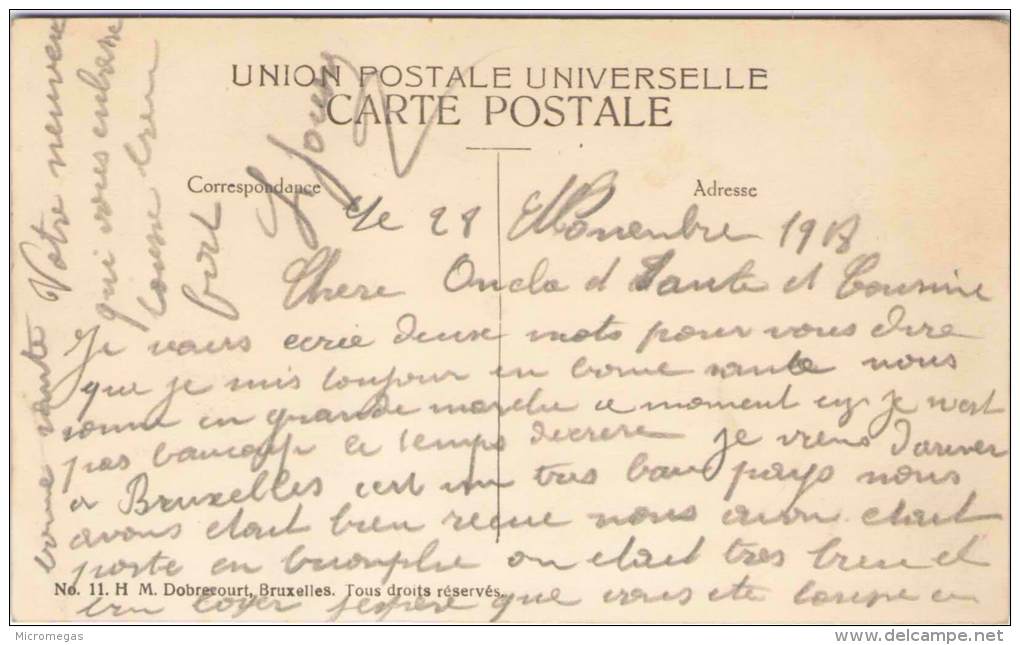 UNION POSTALE UNIVERSELLE
CARTE POSTALE
Correspondance
Adresse
le 28 Novenbre 1918
Chere Oncle et Tante et Cousine
Je vais ecrie deux mots pour vous dire
que je mis toujour en bone sante nous
somme en grande marche ce moment cy je n'est
pas baucoup le temps decrere je viens d'ariver
a Bruxelles cest un tres bau pays nous
avons etait bien recue nous avon etait
porte en triomphe on etait tres bien et
bien loger jespere que vous ete toupe en
bonne sante Votre neveux
qui vous enbrase
tousse bien
fort
No. 11. H M. Dobrecourt, Bruxelles. Tous droits réservés.
Micromegas
www.delcampe.net